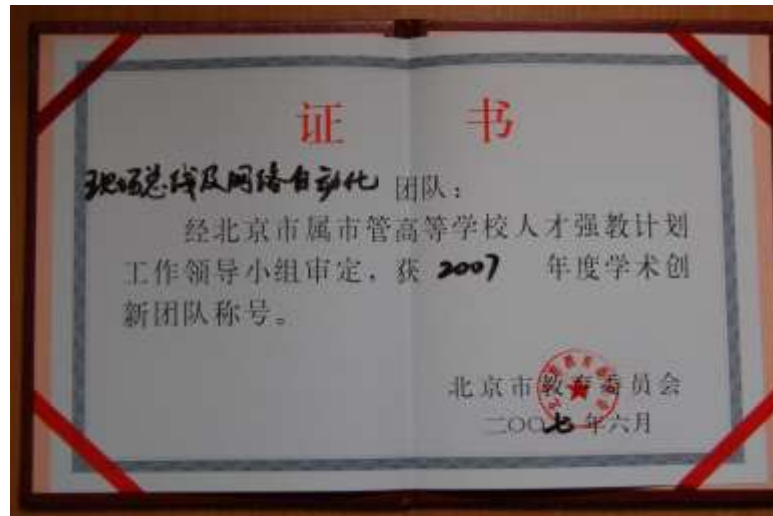 证 书
现场总线及网络自动化 团队：
经北京市属市管高等学校人才强教计划
工作领导小组审定，获 2007 年度学术创
新团队称号。
北京市教育委员会
二〇〇七年六月